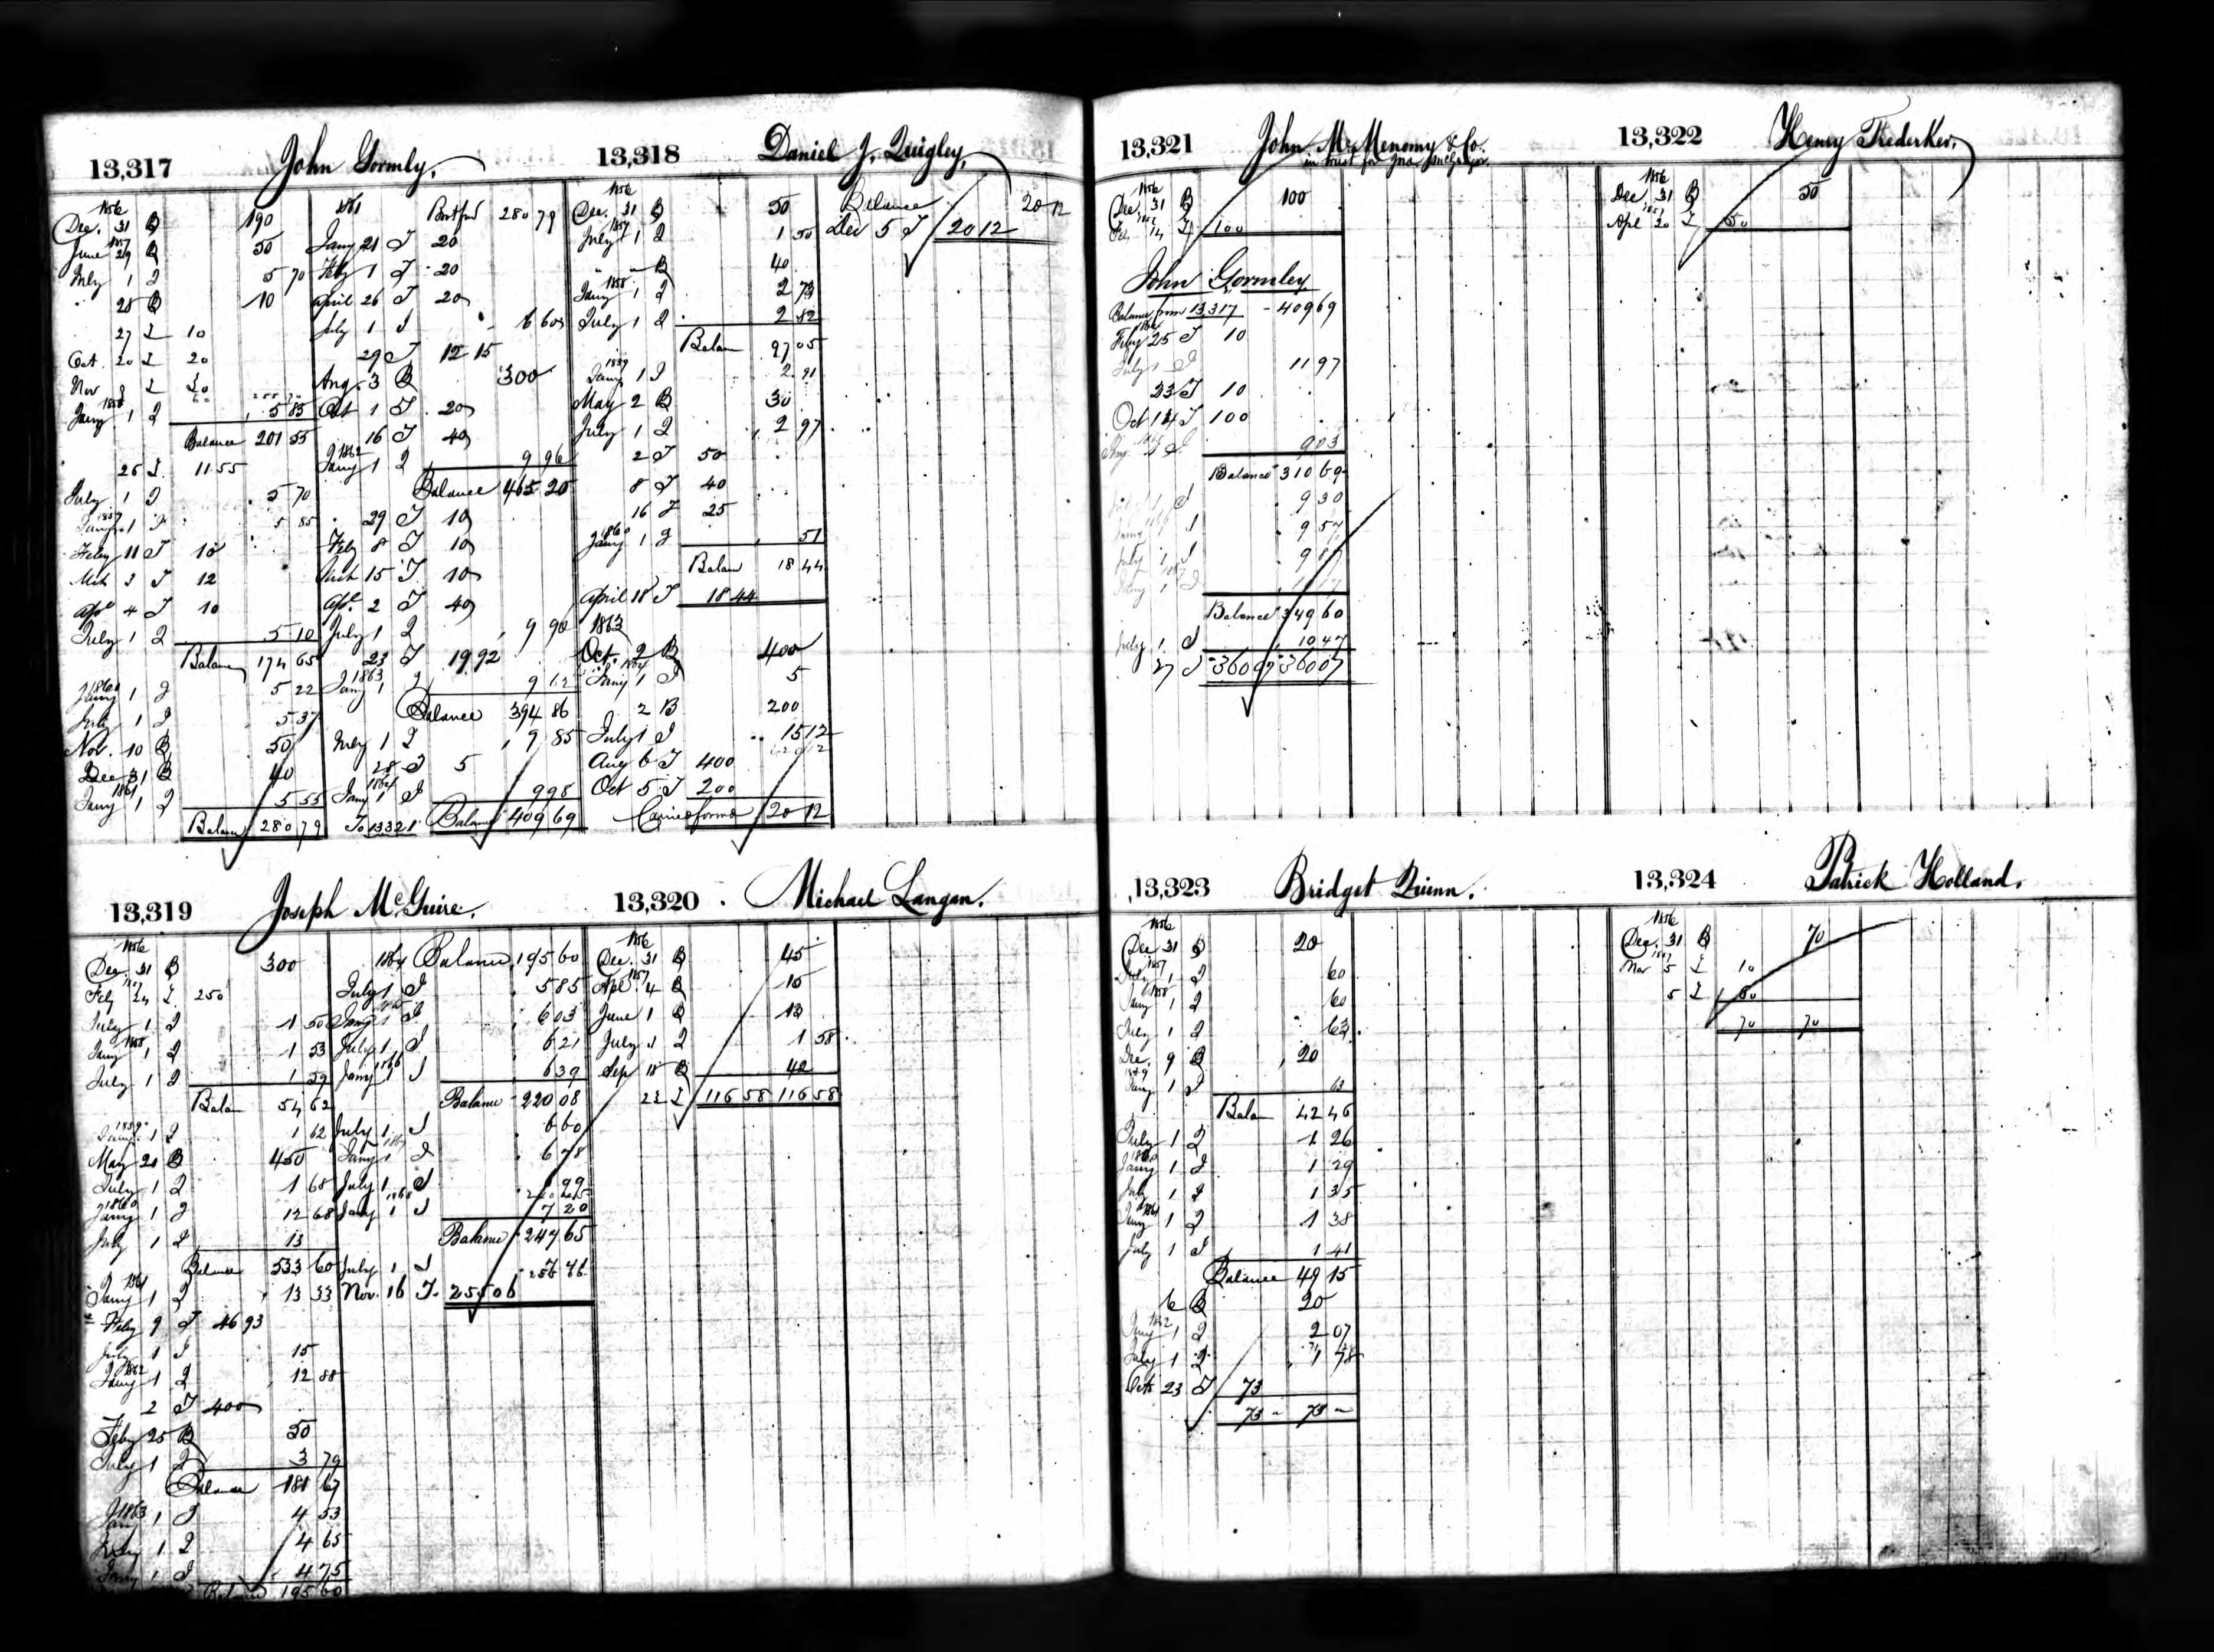 13,317 John Gormly.
1856
Dec. 31 B 190
1857
June 29 B 50
July 1 I 5 70
28 B 10
27 I 10
Oct. 20 I 20
Nov 9 I 20
1858
Jany 1 I 5 85
Balance 201 55
26 I 11 55
July 1 I 5 70
Jany 1 I 5 85
Feby 11 I 10
Mch 3 I 12
Apl 4 I 10
July 1 I 5 10
Balance 174 65
1860
Jany 1 I 5 22
July 1 I 5 37
Nov. 10 B 50
Dec 31 B 40
1861
Jany 1 I 5 55
Balance 280 79
1861 Bortford 280 79
Jany 21 I 20
Feby 1 I 20
April 26 I 20
July 1 I 6 60
29 I 12 15
Aug. 3 B 300
Oct 1 I 20
16 I 40
1862
Jany 1 I 9 96
Balance 465 20
29 I 10
Feby 8 I 10
Mch 15 I 10
Apl. 2 I 40
July 1 I 9 90
23 I 19 92
1863
Jany 1 I
Balance 394 86
July 1 I 9 85
28 I 5
1864
Jany 1 I 9 98
To 13321 Balance 409 69
13,318 Daniel J. Quigley,
1856
Dec. 31 B 50
1857
July 1 I 1 50
" " B 40
1858
Jany 1 I 2 73
July 1 I 2 82
Balan 97 05
1859
Jany 1 I 2 91
May 2 B 30
July 1 I 2 97
2 I 50
8 I 40
16 I 25
1860
Jany 1 I 51
Balan 18 44
April 18 I 18 44
1863
Oct. 2 B 400
1864
Jany 1 I 5
2 B 200
July 1 I 15 12
Aug 6 I 400
Oct 5 I 200
Carriedforward 20 12
Balance 20 12
Dec 5 I 20 12
13,319 Joseph McGuire.
1856
Dec. 31 B 300
1857
Feby 24 I 250
July 1 I 1 50
1858
Jany 1 I 1 53
July 1 I 1 59
Balan 54 62
1859
Jany 1 I 1 62
May 20 B 450
July 1 I 1 68
1860
Jany 1 I 12 68
July 1 I 13
Balance 533 60
1861
Jany 1 I 13 33
Feby 9 I 46 93
July 1 I 15
1862
Jany 1 I 12 88
2 I 400
Feby 25 B 50
July 1 I 3 79
Balance 181 67
1863
Jany 1 I 4 53
July 1 I 4 65
Jany 1 I 4 75
Balance 195 60
1864 Balance 195 60
July 1 I 5 85
Jany 1 I 6 03
July 1 I 6 21
1866
Jany 1 I 6 39
Balance 220 08
July 1 I 6 60
Jany 1 I 6 78
July 1 I 6 99
1868
Jany 1 I 7 20
Balance 247 65
July 1 I
Nov. 16 I. 255 06
13,320 Michael Langan.
1856
Dec. 31 B 45
1857
Apl. 4 B 15
June 1 B 13
July 1 I 1 58
Sep 18 B 42
22 I 116 58 116 58
13,321 John McMenomy & Co.
1856
Dec. 31 B 100
1857
Feb 14 I 100
John Gormley
Balance from 13317 - 409 69
1864
Feby 25 I 10
July 1 I 11 97
23 I 10
Oct 14 I 100
9 03
Balance 310 69
9 30
9 57
July 1 I 9 87
Balance 349 60
July 1 I 10 47
27 I 360 07 360 07
13,322 Henry Frederker.
1856
Dec. 31 B 50
1857
Apl 20 I 50
13,323 Bridget Quinn.
1856
Dec 31 B 20
1857
July 1 I 60
1858
Jany 1 I 60
July 1 I 63
Dec. 9 B 20
1859
Jany 1 I 63
Balan 42 46
July 1 I 1 26
1860
Jany 1 I 1 29
July 1 I 1 35
1861
Jany 1 I 1 38
July 1 I 1 41
Balance 49 15
6 B 20
1862
Jany 1 I 2 07
July 1 I 1 78
Octo 23 I 73
73 - 73 -
13,324 Patrick Holland.
1856
Dec. 31 B 70
1857
Mar 5 I 10
5 I 60
70 70